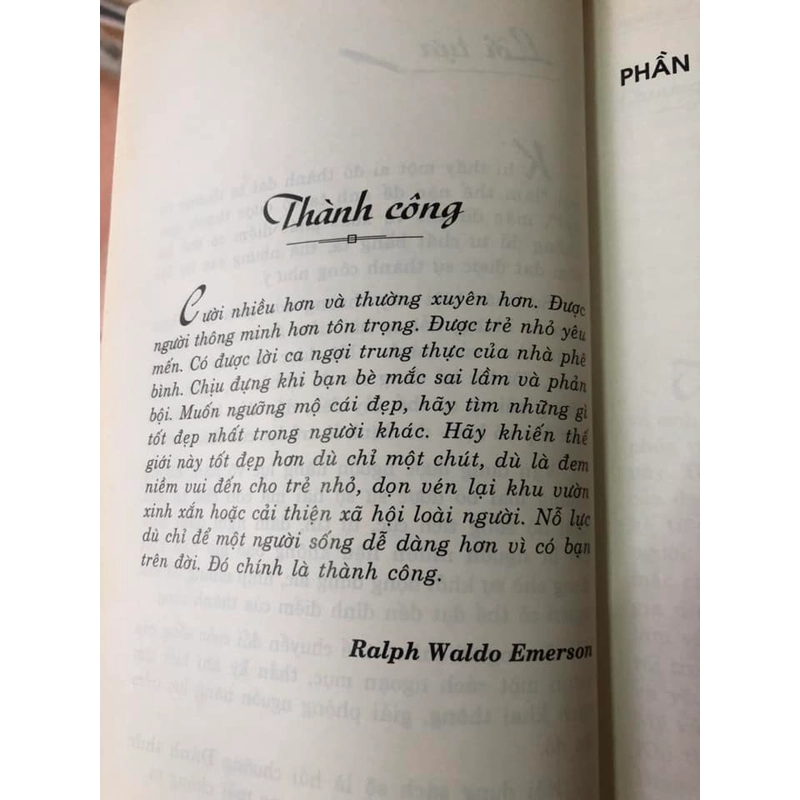 PHẦN
Thành công
Cười nhiều hơn và thường xuyên hơn. Được
người thông minh hơn tôn trọng. Được trẻ nhỏ yêu
mến. Có được lời ca ngợi trung thực của nhà phê
bình. Chịu đựng khi bạn bè mắc sai lầm và phản
bội. Muốn ngưỡng mộ cái đẹp, hãy tìm những gì
tốt đẹp nhất trong người khác. Hãy khiến thế
giới này tốt đẹp hơn dù chỉ một chút, dù là đem
niềm vui đến cho trẻ nhỏ, dọn vén lại khu vườn
xinh xắn hoặc cải thiện xã hội loài người. Nỗ lực
dù chỉ để một người sống dễ dàng hơn vì có bạn
trên đời. Đó chính là thành công.
Ralph Waldo Emerson